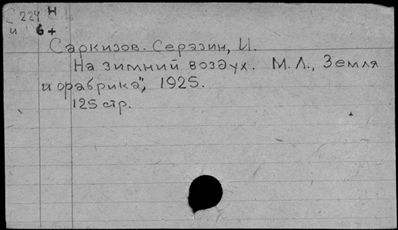 224 Н
и 6+
Саркизов-Серазин, И.
На зимний воздух. М.Л., Земля
и фабрика", 1925.
125 стр.